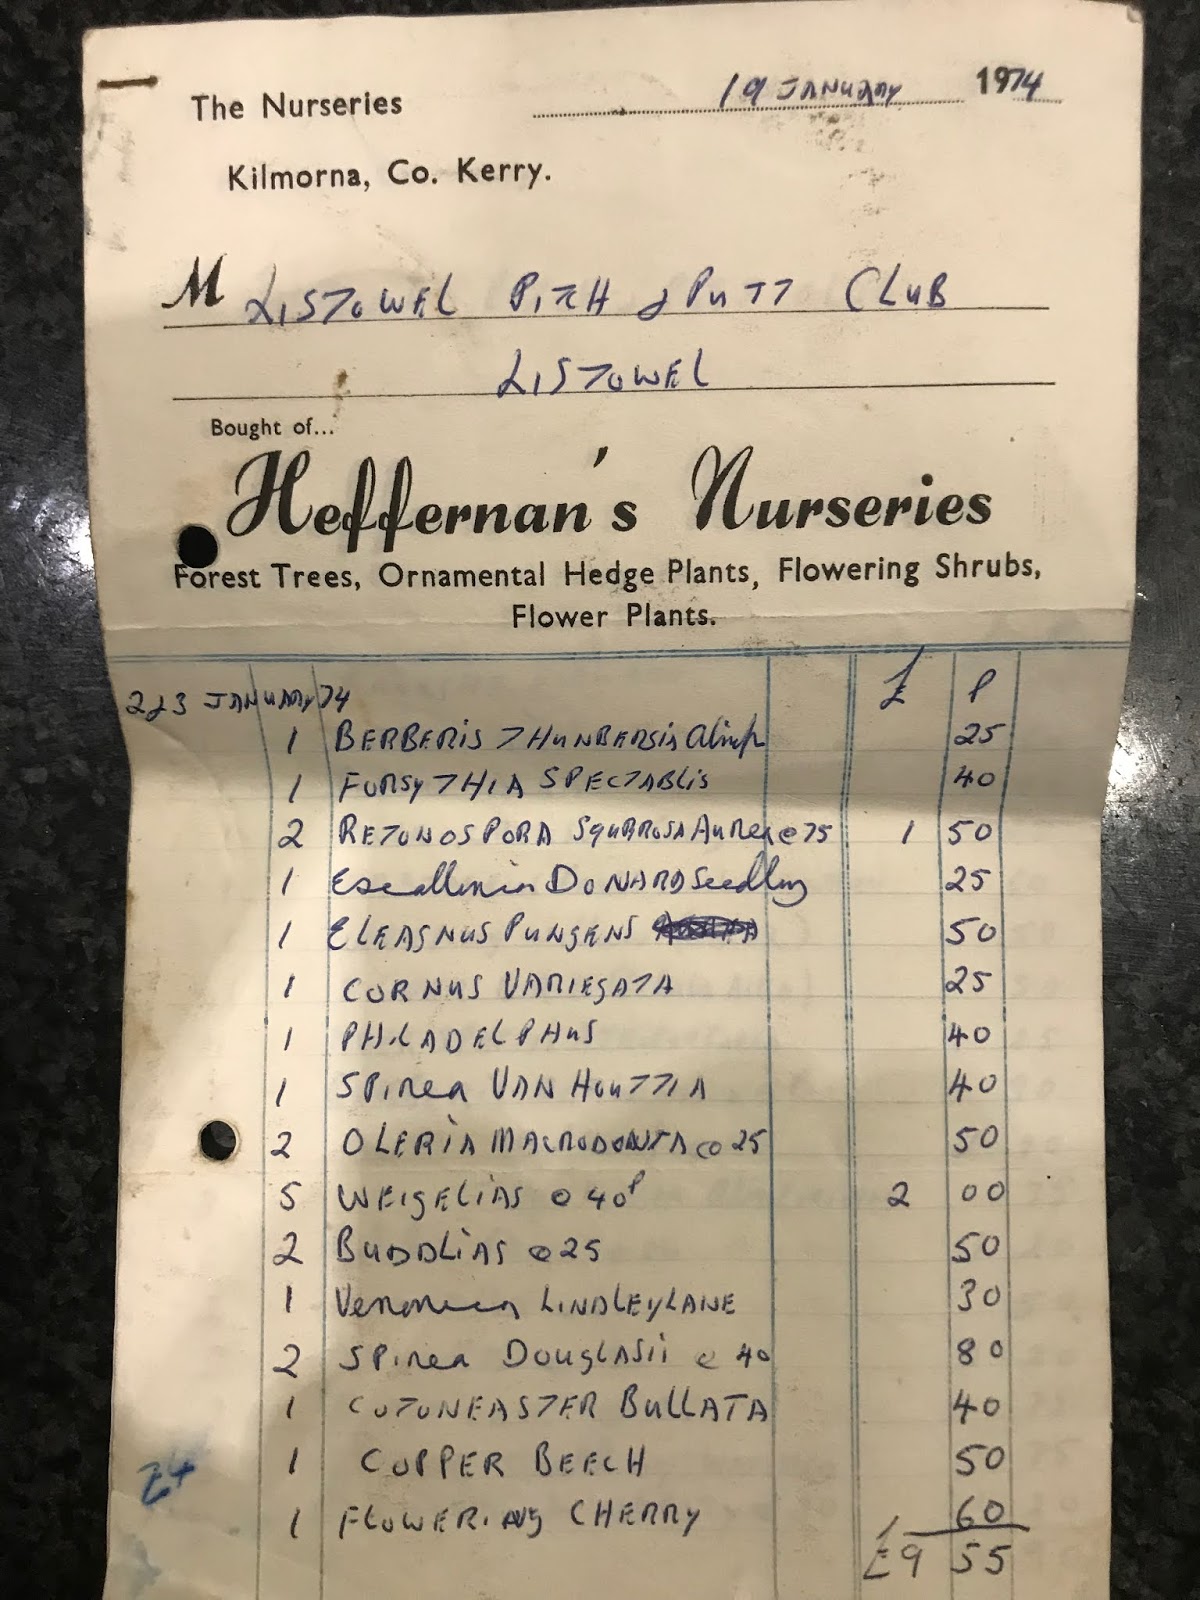 The Nurseries 19 JANUARY 1974
Kilmorna, Co. Kerry.
M LISTOWEL PITCH & PUTT CLUB
LISTOWEL
Bought of...
Heffernan's Nurseries
Forest Trees, Ornamental Hedge Plants, Flowering Shrubs,
Flower Plants.
2&3 JANUARY 74 £ P
1 BERBERIS THUNBERSIS 25
1 FORSYTHIA SPECTABLIS 40
2 RETONOSPORA SQURROSA AUREA @ 75 1 50
1 Escallonia DONARD Seedling 25
1 ELEAGNUS PUNGENS 50
1 CORNUS VARIEGATA 25
1 PHILADELPHUS 40
1 SPIREA VAN HOUTTIA 40
2 OLERIA MACRODONTA @ 25 50
5 WEIGELIAS @ 40P 2 00
2 BUDDLIAS @ 25 50
1 Veronica LINDLEYLANE 30
2 SPIREA DOUGLASII @ 40 80
1 COTONEASTER BULLATA 40
1 COPPER BEECH 50
1 FLOWERING CHERRY 60
24 £9 55